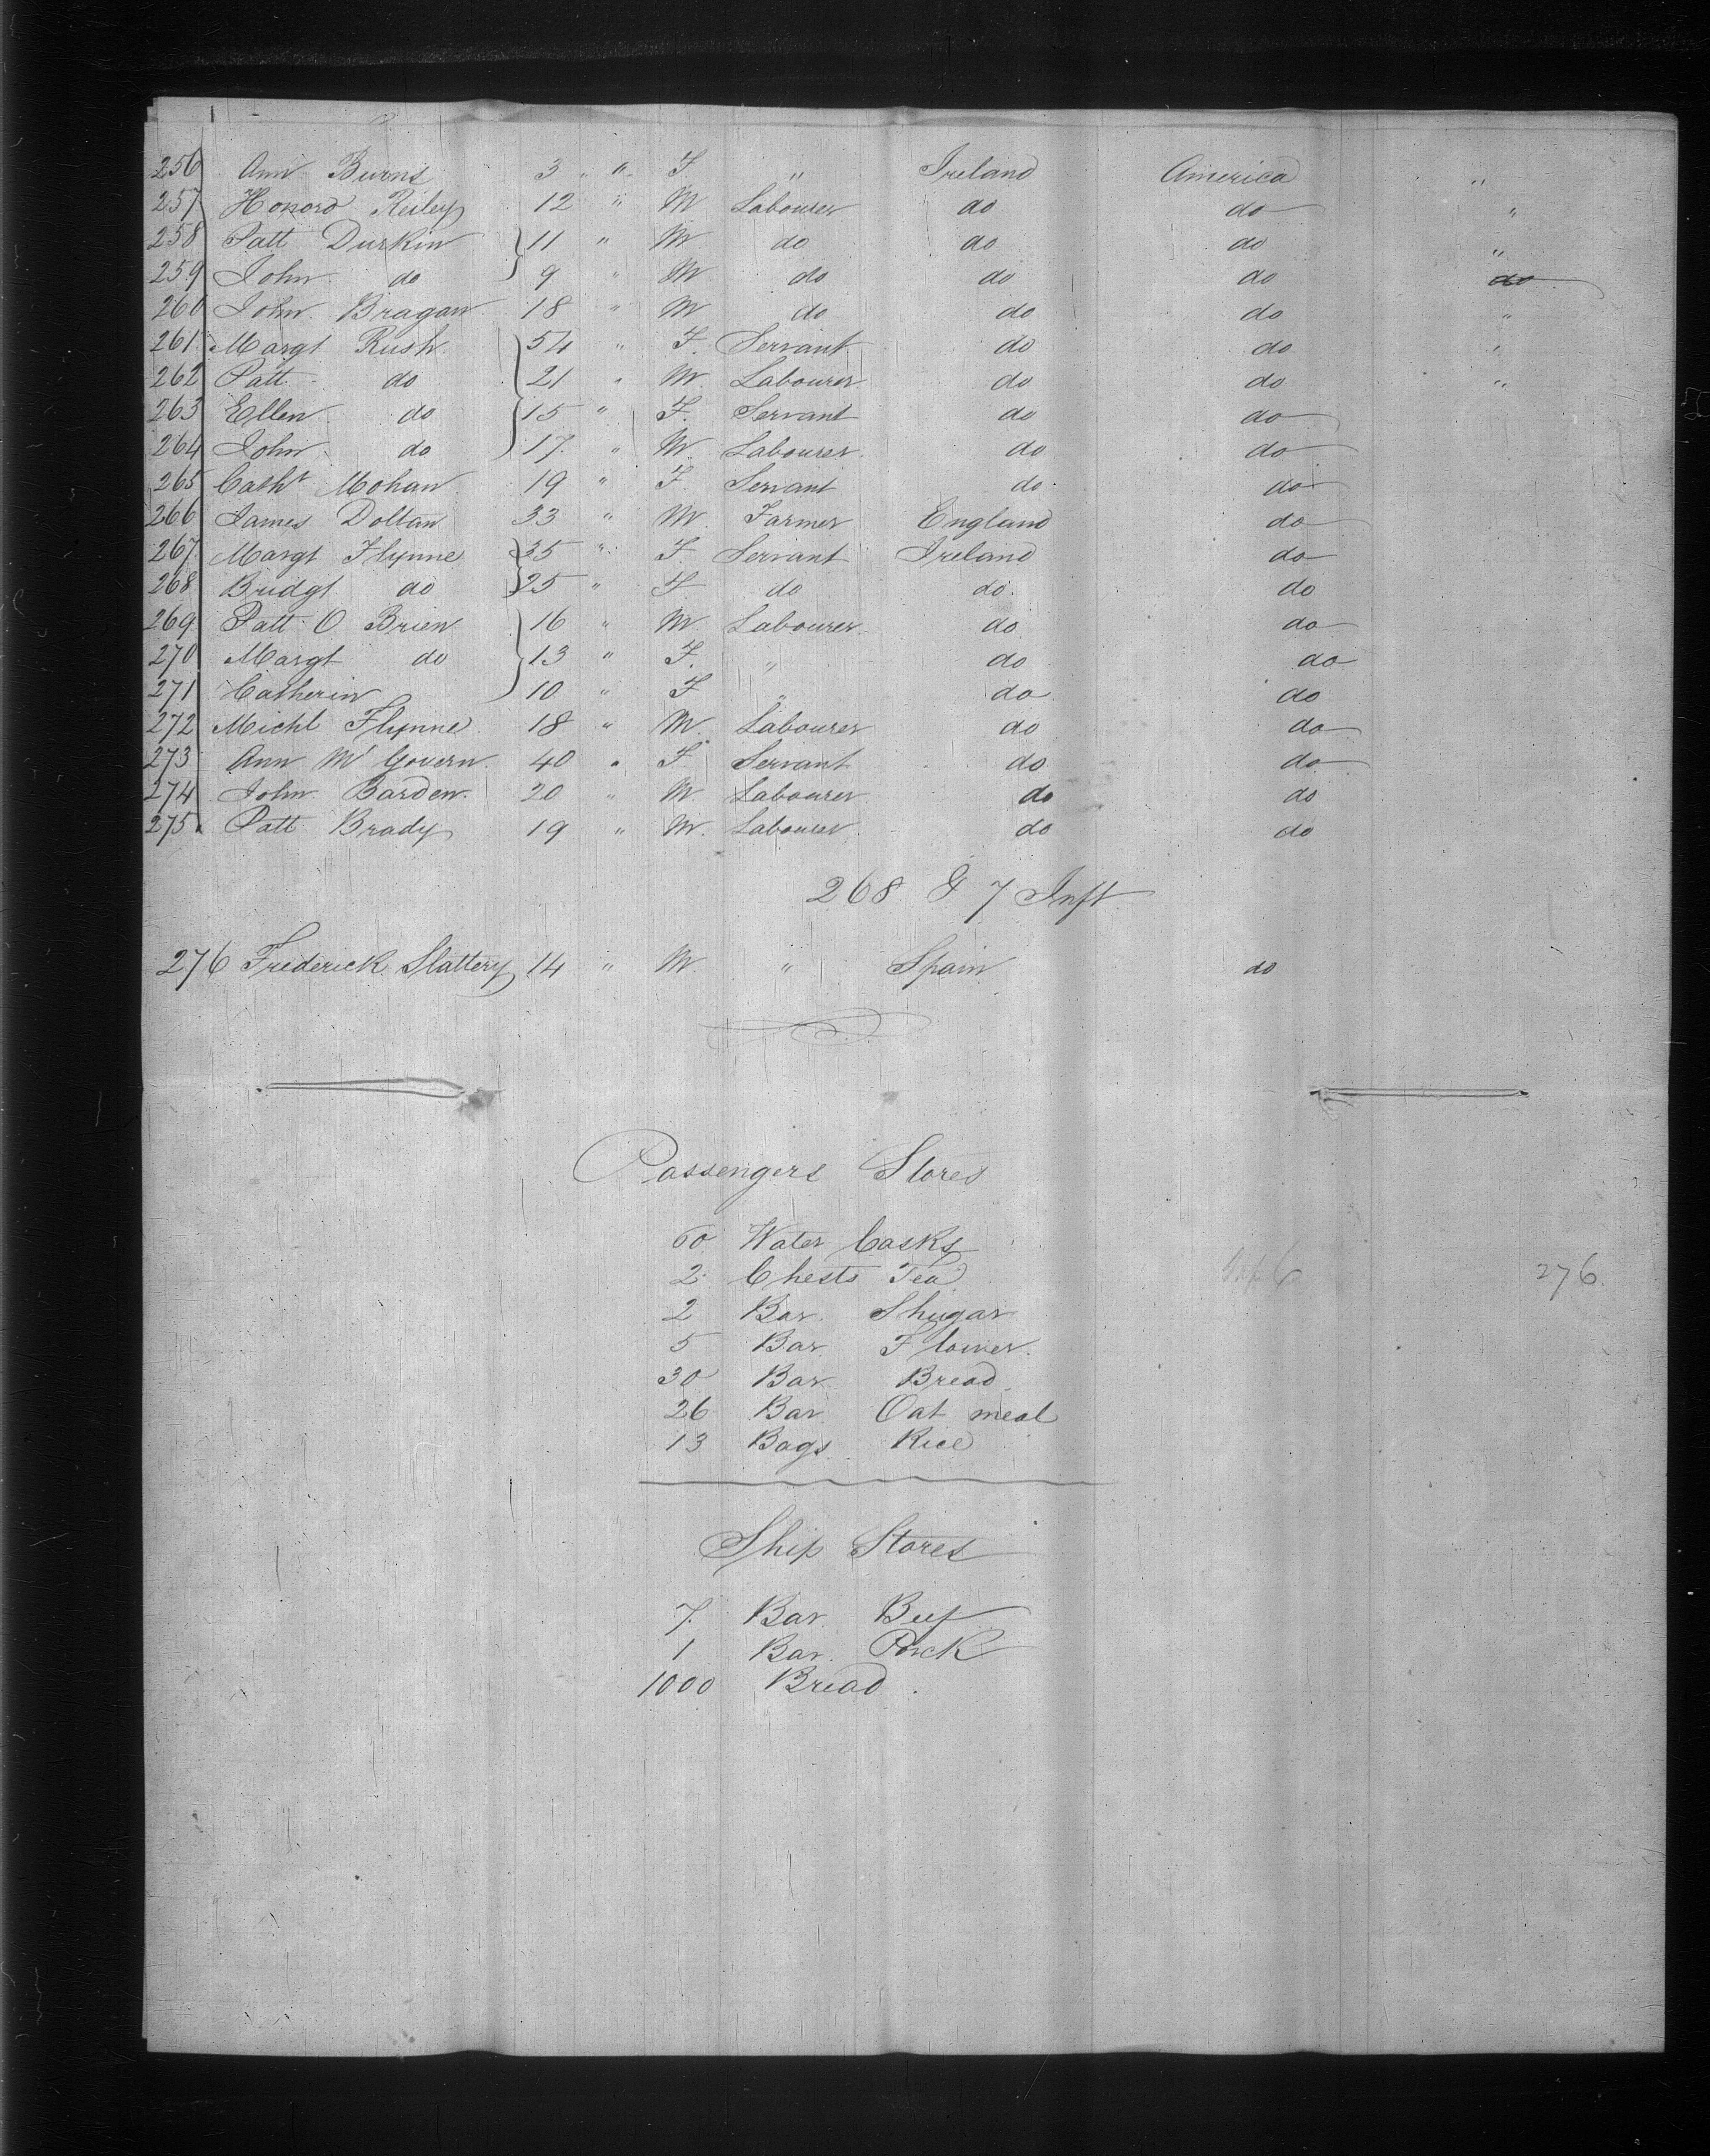 256 Ann Burns 3 " " F " Ireland America "
257 Honord Reiley 12 " M Labourer do do "
258 Patt Durkin 11 " M do do do "
259 John do 9 " M do do do do
260 John Bragan 18 " M do do do "
261 Margt Rush 54 " F. Servant do do "
262 Patt do 21 " M. Labourer do do "
263 Ellen do 15 " F. Servant do do
264 John do 17. " M. Labourer do do
265 Casht Mohan 19 " F Servant do do
266 James Doltan 33 " M. Farmer England do
267 Margt Flynne 35 " F. Servant Ireland do
268 Bridgt do 25 " F do do. do
269 Patt O Brien 16 " M Labourer do do
270 Margt do 13 " F. " do do
271 Catherin 10 " F " do do
272 Michl Flynne 18 " M. Labourer do do
273 Ann Mc Govern 40 " F Servant do do
274 John Barden. 20 " M. Labourer do do
275. Patt Brady 19 " M. Labourer do do
268 & 7 Inft
276 Frederick Slattery 14 " M. " Spain do
Passengers Stores
60 Water Casks
2 Chests Tea
Inf 6 276.
2 Bar. Shugar
5 Bar. Flower.
30 Bar Bread
26 Bar Oat meal
13 Bags Rice
Ship Stores
7. Bar Beef
1 Bar. Porck
1000 Bread.